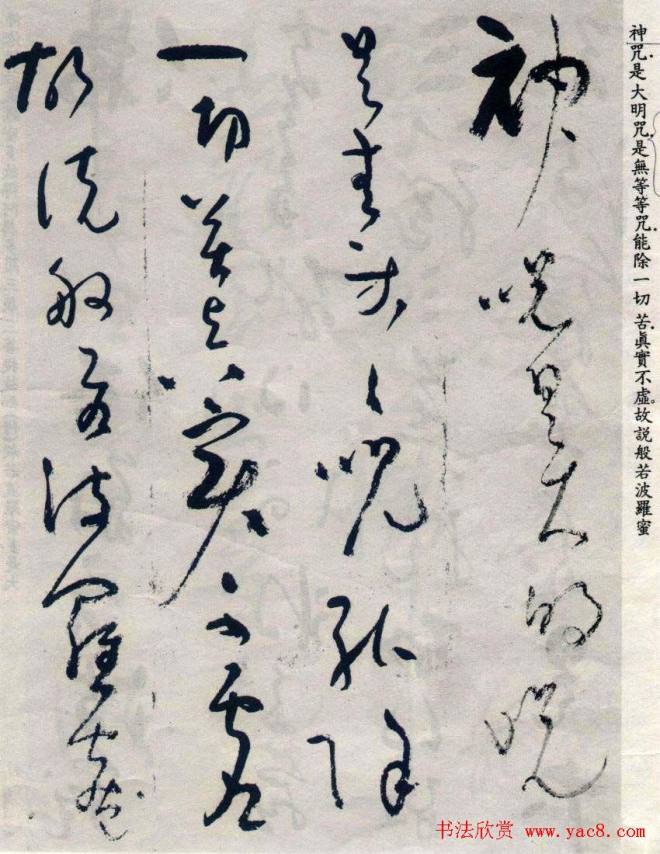 神咒是大明咒是無等等咒能除一切苦眞實不虛。故說般若波羅蜜
神咒是大明咒
是無等等咒能除
一切苦真實不虛
故說般若波羅蜜
书法欣赏 www.yac8.com